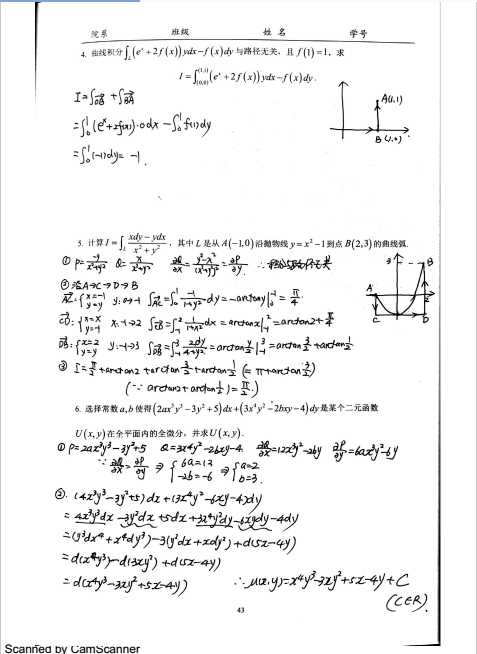 院系 班级 姓名 学号
4. 曲线积分∫_L(eˣ+2f(x))ydx−f(x)dy与路径无关，且 f(1)=1，求
I=∫_(0,0)^(1,1)(eˣ+2f(x))ydx−f(x)dy.
I=∫_OB+∫_BA
=∫₀¹(eˣ+2f(x))·0dx−∫₀¹f(1)dy
=∫₀¹(-1)dy=-1.
A(1,1)
B(1,0)
5. 计算 I=∫_L (xdy−ydx)/(x²+y²)，其中 L 是从 A(−1,0) 沿抛物线 y=x²−1 到点 B(2,3) 的曲线弧.
① P=-y/(x²+y²) Q=x/(x²+y²) ∂Q/∂x=(y²-x²)/(x²+y²)²=∂P/∂y
② 沿A→C→D→B
AC:{x=-1 y=y y:0→-1
CD:{x=x y=-1 x:-1→2
DB:{x=2 y=y y:-1→3
3
A
B
C
D
③ I=π/2+arctan2+arctan3/2+arctan1/2(=π+arctan3/2)
(∵ arctan2+arctan1/2=π/2.)
6. 选择常数 a,b 使得(2ax³y³−3y²+5)dx+(3x⁴y²−2bxy−4)dy 是某个二元函数
U(x,y) 在全平面内的全微分，并求U(x,y).
① P=2ax³y³-3y²+5 Q=3x⁴y²-2bxy-4 ∂Q/∂x=12x³y²-2by ∂P/∂y=6ax³y²-6y
∵ ∂Q/∂x=∂P/∂y ⇒ {6a=12 -2b=-6 ⇒ {a=2 b=3.
②. (4x³y³-3y²+5)dx+(3x⁴y²-6xy-4)dy
=4x³y³dx-3y²dx+5dx+3x⁴y²dy-6xydy-4dy
=(y³dx⁴+x⁴dy³)-3(y²dx+xdy²)+d(5x-4y)
=d(x⁴y³)-d(3xy²)+d(5x-4y)
=d(x⁴y³-3xy²+5x-4y) ∴u(x,y)=x⁴y³-3xy²+5x-4y+C
(C∈R).
43
Scanned by CamScanner